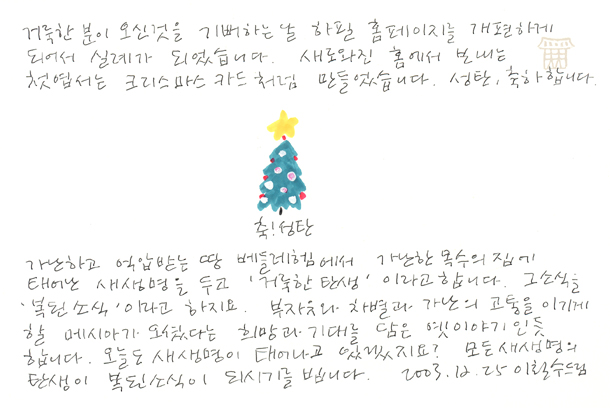 거룩한 분이 오신것을 기뻐하는 날 하필 홈페이지를 개편하게
되어서 실례가 되었습니다. 새로와진 홈에서 보내는
첫엽서는 크리스마스 카드처럼 만들었습니다. 성탄, 축하합니다.
축!성탄
가난하고 억압받는 땅 베들레헴에서 가난한 목수의 집에
태어난 새생명을 두고 '거룩한 탄생' 이라고 합니다. 그소식을
'복된 소식' 이라고 하지요. 부자유와 차별과 가난의 고통을 이기게
할 메시아가 오셨다는 희망과 기대를 담은 옛이야기인듯
합니다. 오늘도 새생명이 태어나고 있겠지요? 모든 새생명의
탄생이 복된소식이 되시기를 빕니다. 2003.12.25 이철수드림